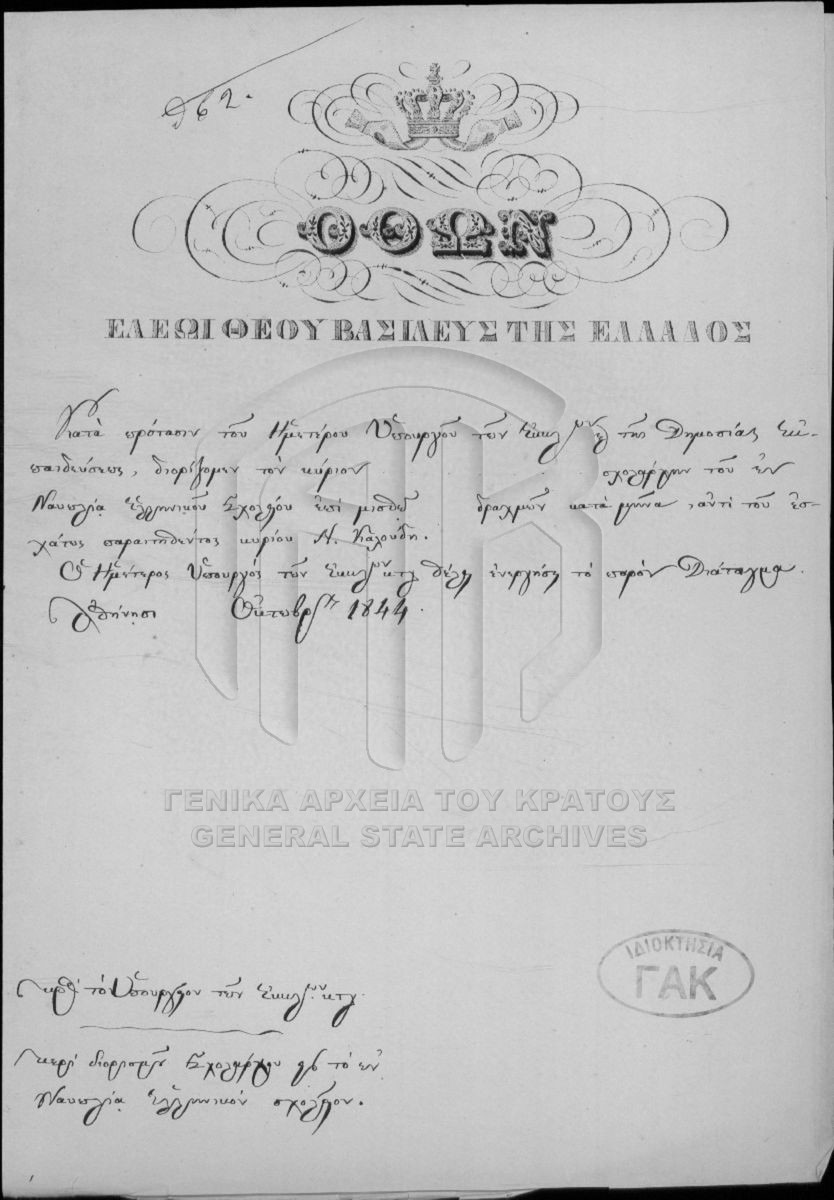 962.
ΟΘΩΝ
ΕΛΕΩΙ ΘΕΟΥ ΒΑΣΙΛΕΥΣ ΤΗΣ ΕΛΛΑΔΟΣ
Κατὰ πρότασιν τοῦ Ἡμετέρου Ὑπουργοῦ τῶν Ἐκκλ/ῶν καὶ τῆς Δημοσίας Ἐκ-
παιδεύσεως, διορίζομεν τὸν κύριον σχολάρχην τοῦ ἐν
Ναυπλίᾳ Ἑλληνικοῦ Σχολείου ἐπὶ μισθῷ δραχμῶν κατὰ μῆνα, ἀντὶ τοῦ ἐσ-
χάτως παραιτηθέντος κυρίου Ν. Καλούδη.
Ὁ Ἡμέτερος Ὑπουργὸς τῶν Ἐκκλ/ῶν κτλ θέλει ἐνεργήσῃ τὸ παρὸν Διάταγμα.
Ἀθήνησι Ὀκτωβρ 1844.
ΓΕΝΙΚΑ ΑΡΧΕΙΑ ΤΟΥ ΚΡΑΤΟΥΣ
GENERAL STATE ARCHIVES
ΙΔΙΟΚΤΗΣΙΑ
ΓΑΚ
πρὸς τὸ Ὑπουργεῖον τῶν Ἐκκλ/ῶν κτλ.
περὶ διορισμοῦ Σχολάρχου εἰς τὸ ἐν
Ναυπλίᾳ Ἑλληνικὸν σχολεῖον.